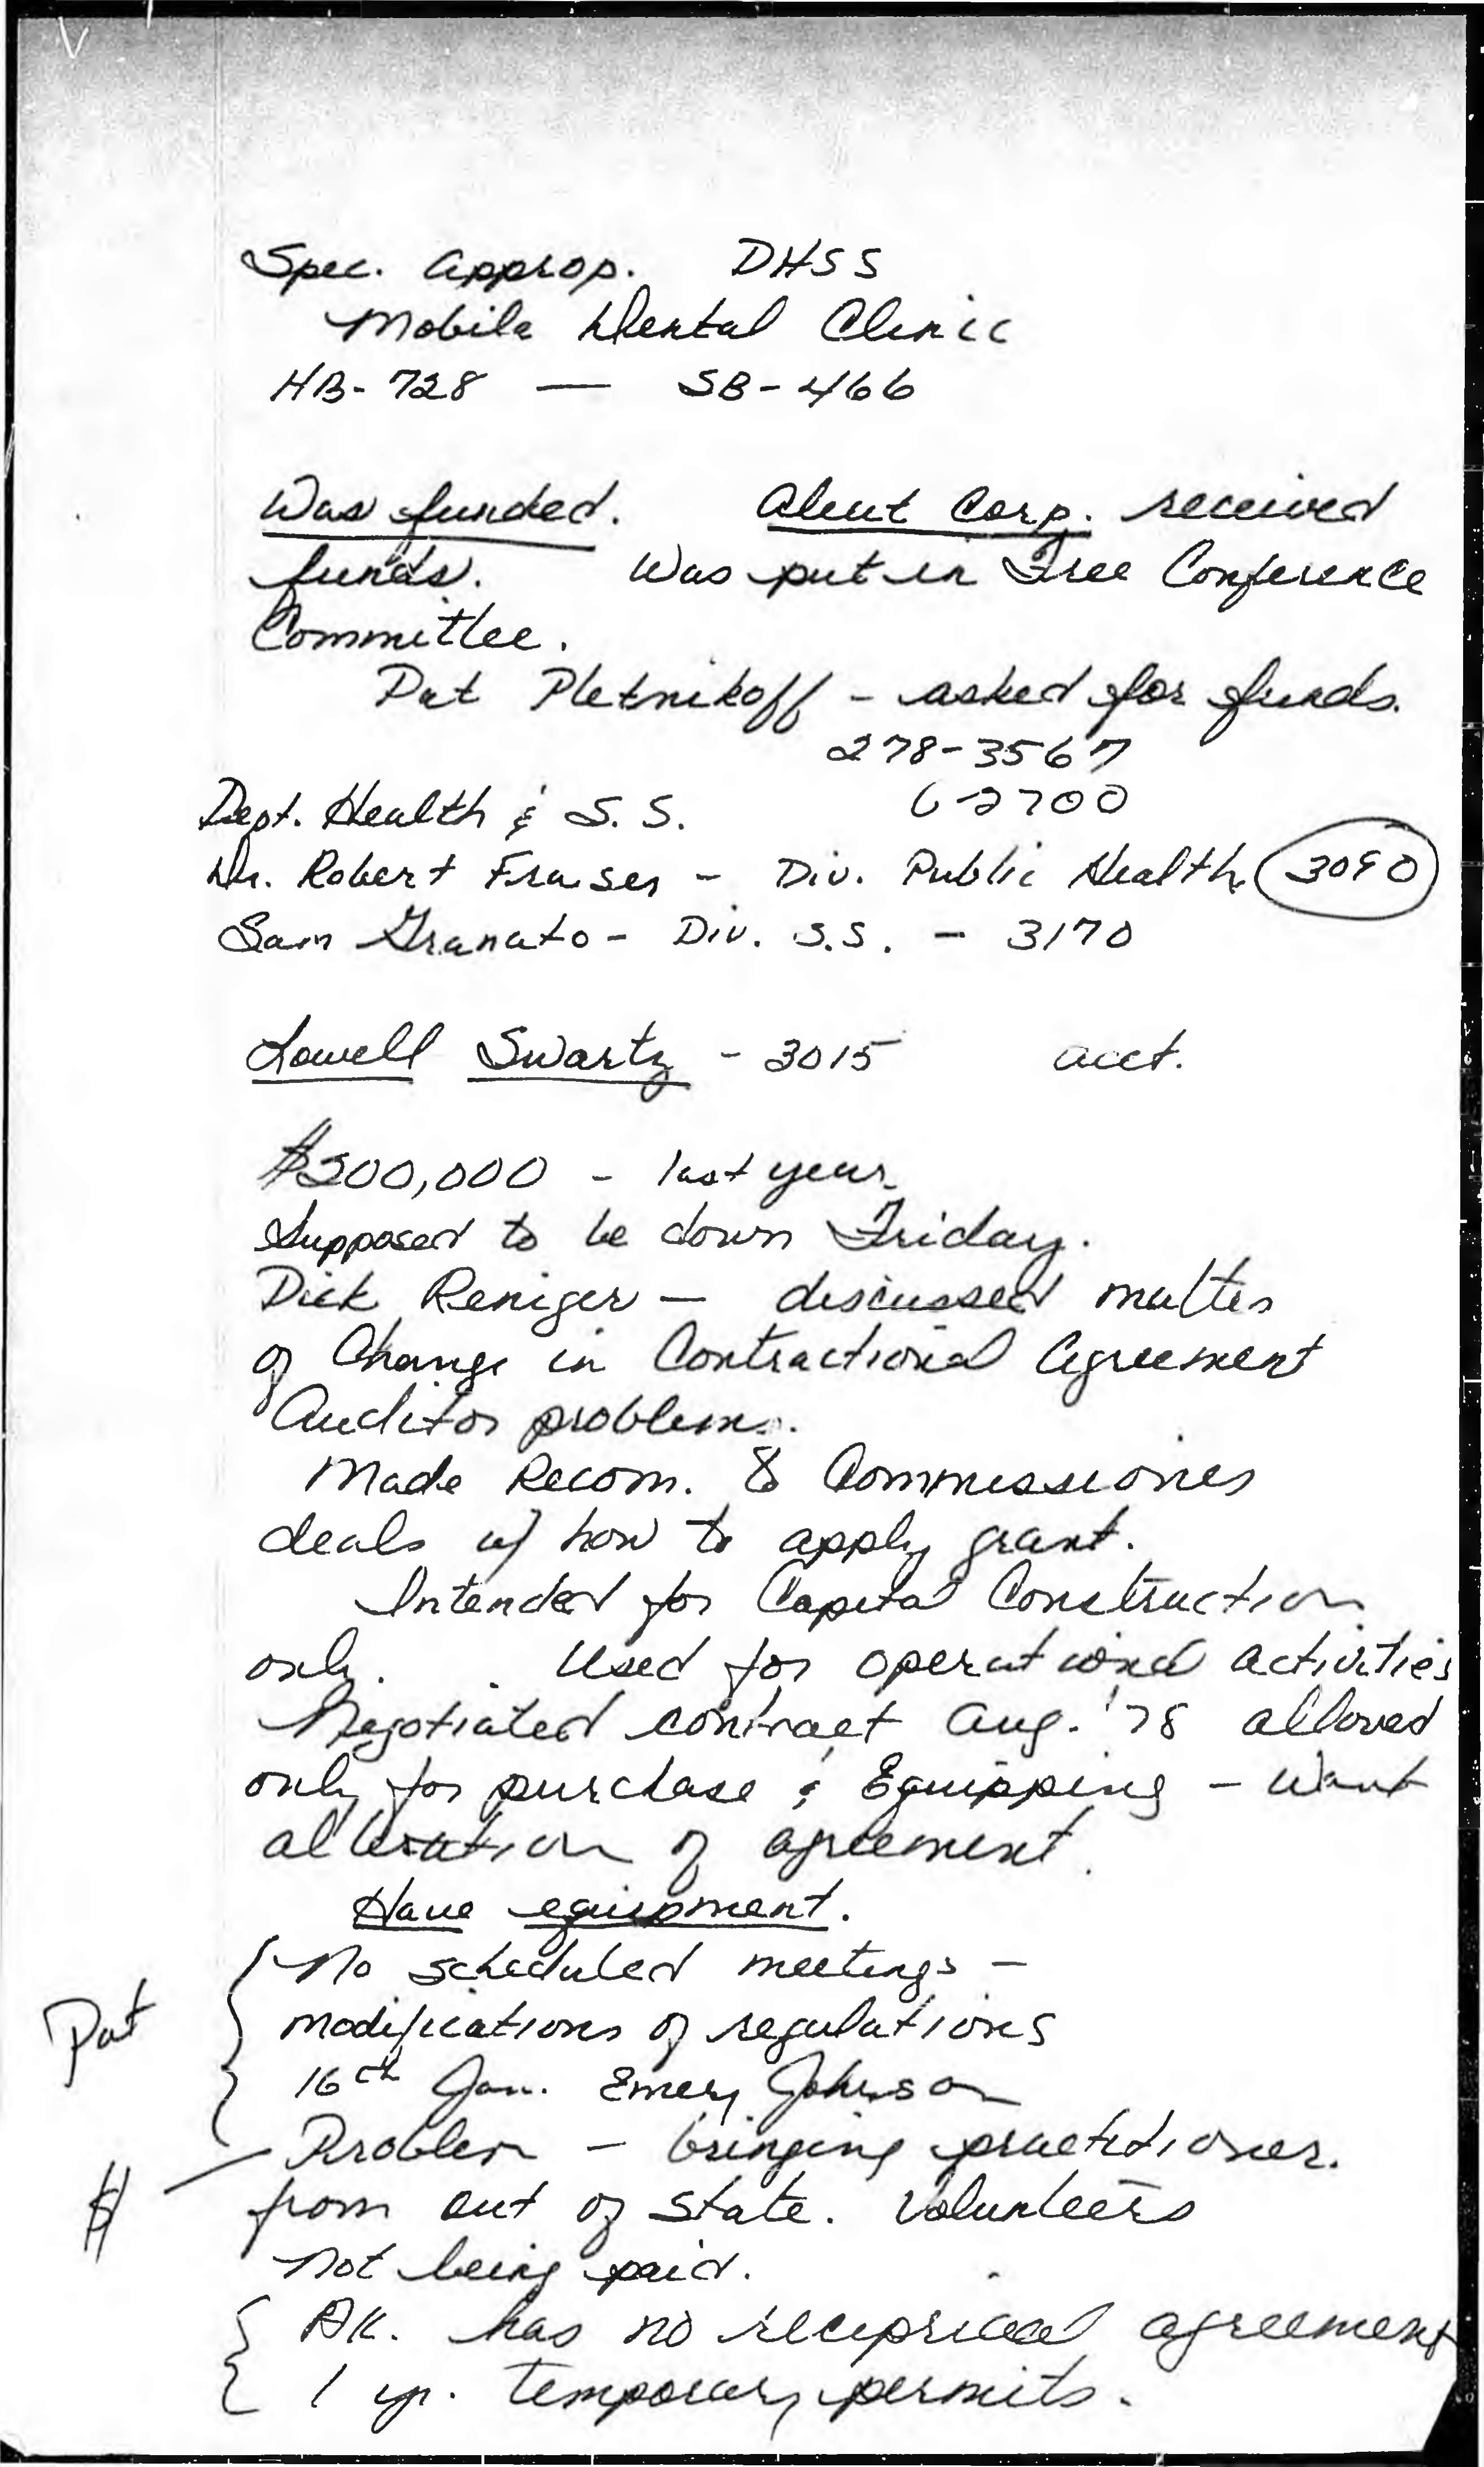 Spec. Approp. DHSS
Mobile Dental Clinic
HB-728 — SB-466
Was funded. Aleut Corp. received
funds. Was put in Free Conference
Committee.
Pat Pletnikoff - asked for funds.
278-3567
Dept. Health & S.S. 6-2700
Dr. Robert Fraiser - Div. Public Health 3090
Sam Granato - Div. S.S. - 3170
Lowell Swartz - 3015 acct.
$200,000 - last year
Supposed to be down Friday.
Dick Reniger — discussed matter
of Change in Contractional Agreement
Auditor problem.
Made Recom. to Commissioner
deals w/ how to apply grant.
Intended for Capital Construction
only. Used for operational activities
Negotiated contract Aug. '78 allowed
only for purchase & Equipping - Want
alteration of agreement.
Have equipment.
No scheduled meetings -
Pat modifications of regulations
16th Jan. Emery Johnson
Problem - bringing practitioner.
$ from out of State. Volunteers
not being paid.
AK. has no reciprical agreement
1 yr. temporary permits.